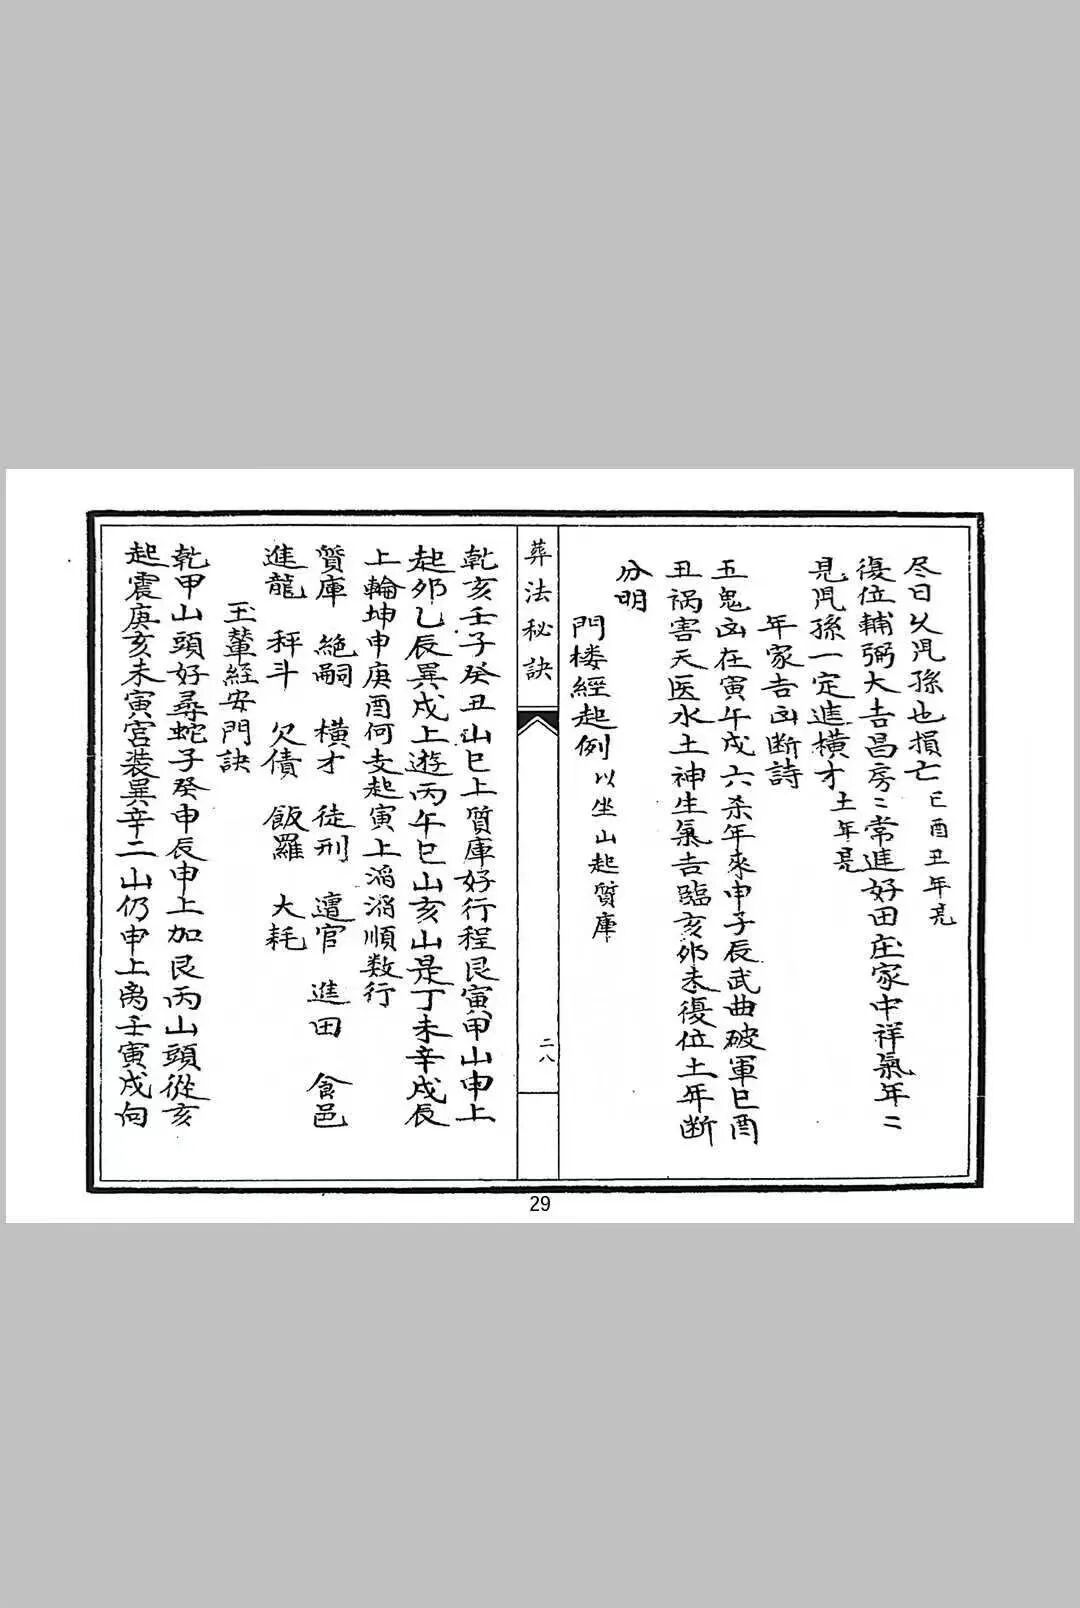 尽日乆凣孫也損亡 巳酉丑年亮
復位輔弼大吉昌房〻常進好田庄家中祥氣年〻
見凣孫一定進横才 土年亮
年家吉凶断詩
五鬼凶在寅午戌六杀年來申子辰武曲破軍巳酉
丑祸害天医水土神生氣吉臨亥卯未復位土年断
分明
門楼經起例 以坐山起質庫
葬法秘訣
二八
乾亥壬子癸丑山巳上質庫好行程艮寅甲山申上
起卯乙辰巽戌上遊丙午巳山亥山是丁未辛戌辰
上輪坤申庚酉何支起寅上滔滔順数行
質庫 絶嗣 横才 徒刑 遭官 進田 食邑
進龍 秤斗 欠債 飯羅 大耗
玉輦經安門訣
乾甲山頭好尋蛇子癸申辰申上加艮丙山頭從亥
起震庚亥未寅宮装巽辛二山仍申上离壬寅戌向
29